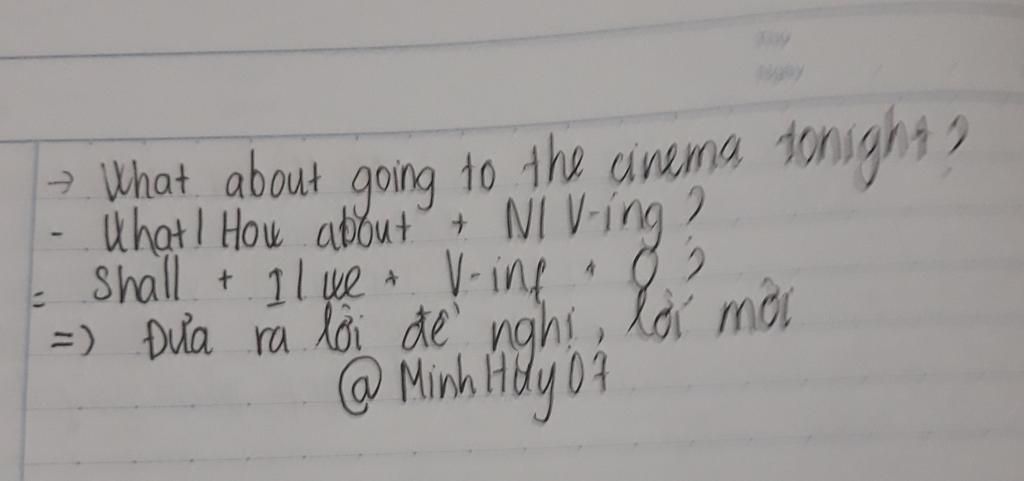 Thứ
Ngày
→ What about going to the cinema tonight?
- What/ How about + N/ V-ing?
= Shall + I/ we + V-inf + O?
=> Đưa ra lời đề nghị, lời mời
@MinhHuy07